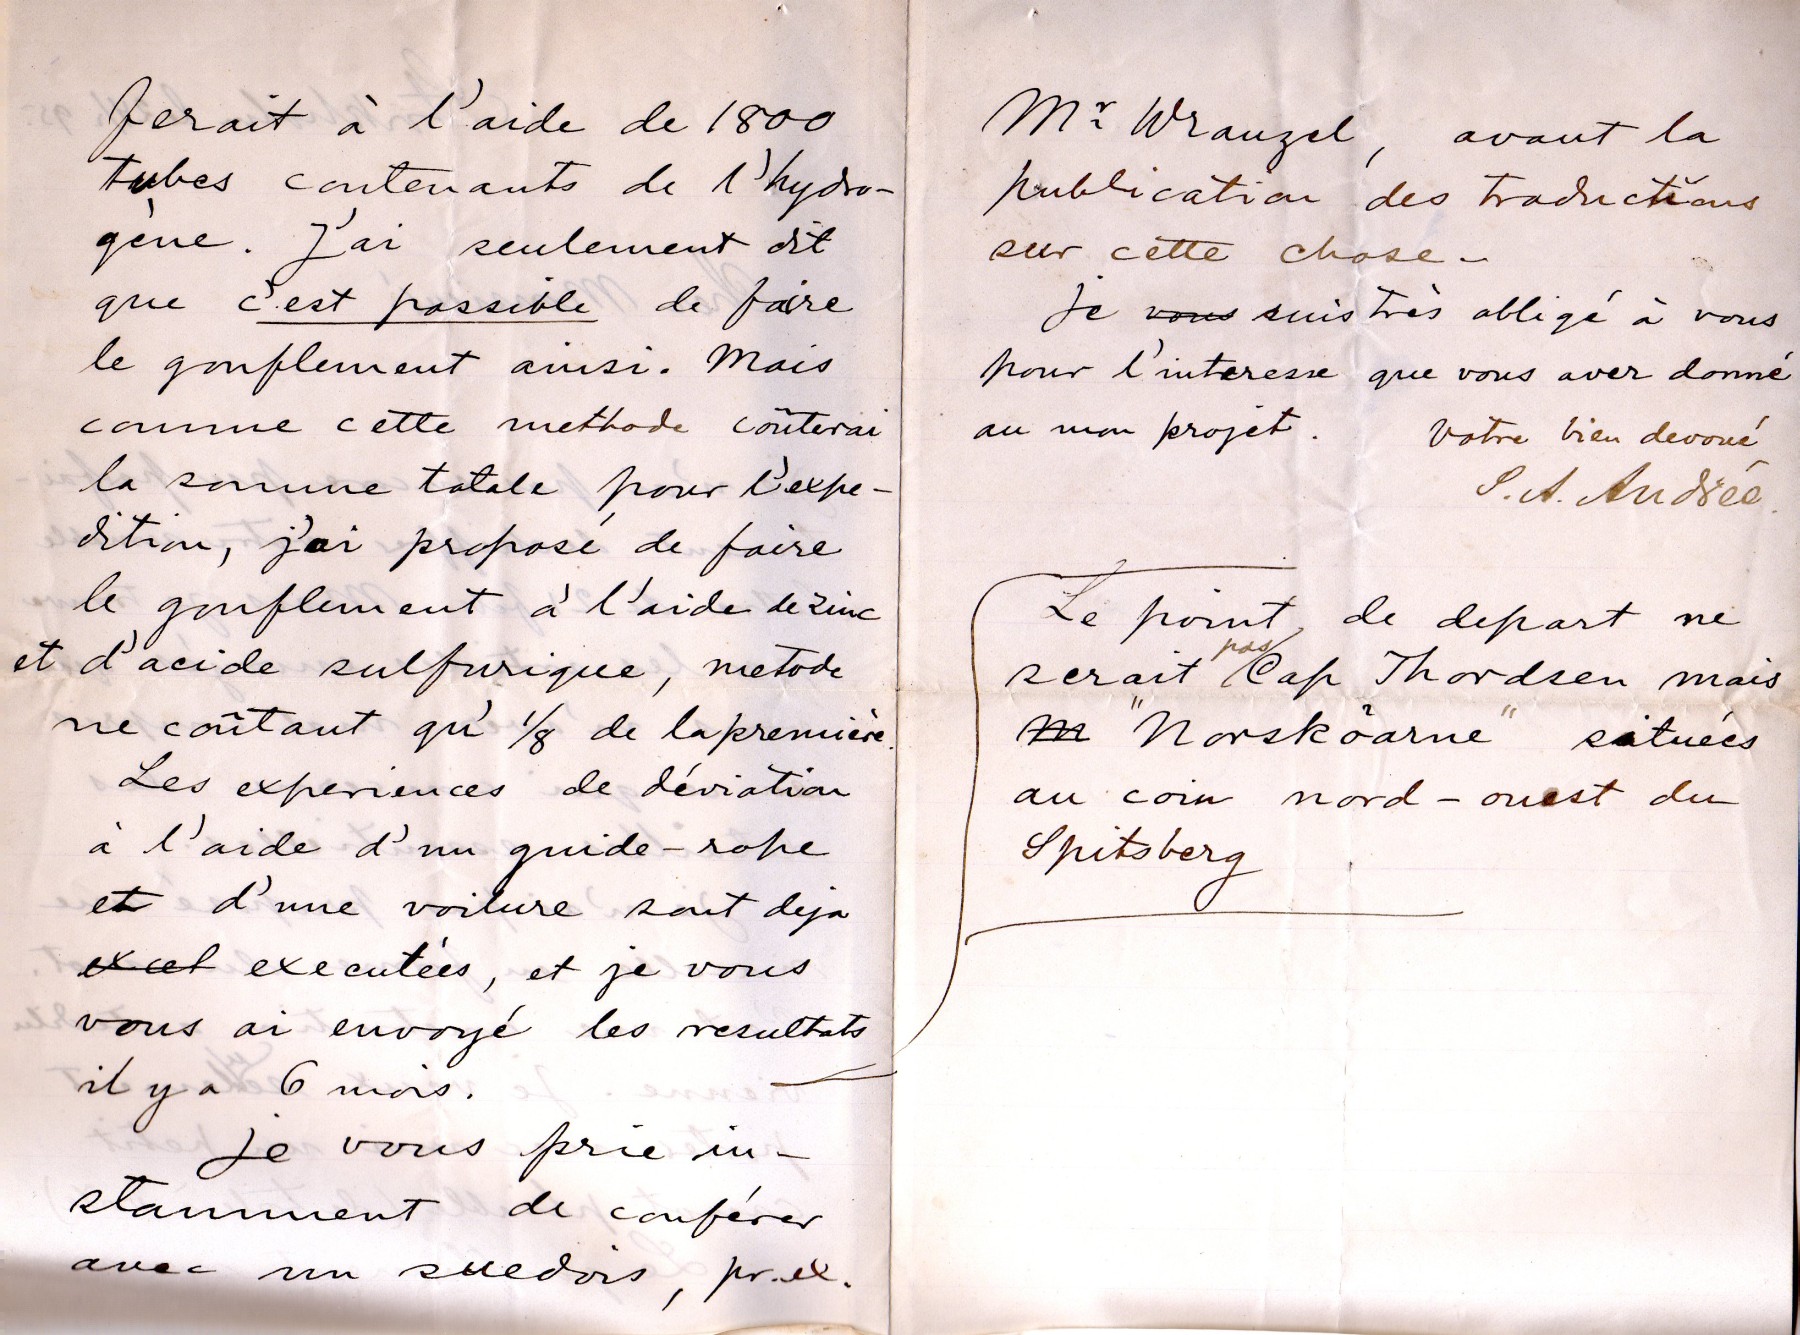 ferait à l'aide de 1800
tubes contenants de l'hydro-
gène. J'ai seulement dit
que c'est possible de faire
le gonflement ainsi. Mais
comme cette methode coûterai
la somme totale pour l'expe-
dition, j'ai proposé de faire
le gonflement à l'aide de zinc
et d'acide sulfurique, metode
ne coûtant qu' 1/8 de la première.
Les experiences de déviation
à l'aide d'un guide-rope
et d'une voilure sont deja
executées, et je vous
vous ai envoyé les resultats
il y a 6 mois.
Je vous prie in-
stamment de conférer
avec un suedois, pr. ex.
Mr Wrangel, avant la
publication des traductions
sur cette chose-
Je vous suis très obligé à vous
pour l'interesse que vous aver donné
au mon projet. Votre bien devoué
S. A. Andrée.
Le point de depart ne
serait pas Cap Thordsen mais
"Norsköarne" situées
au coin nord-ouest du
Spitsberg